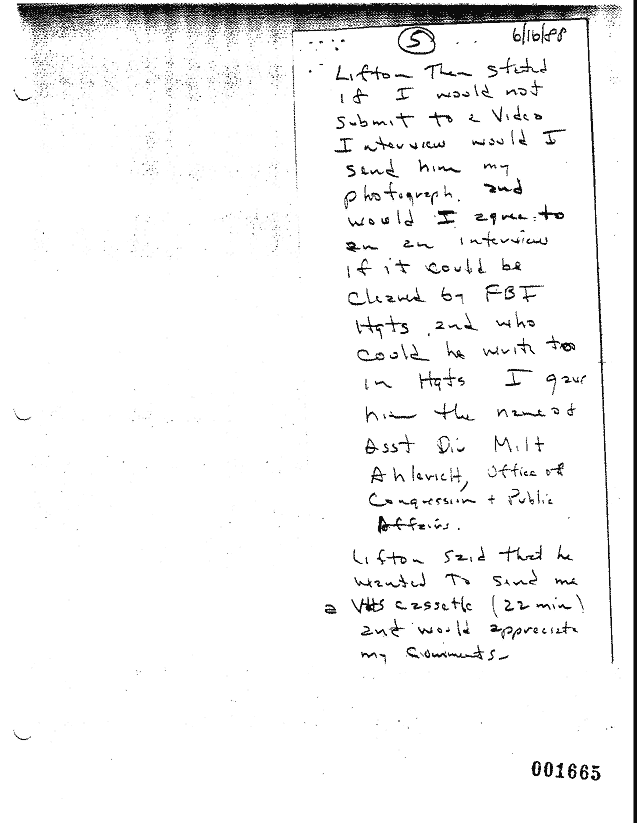 5 6/16/88
Lifton Then stated
if I would not
Submit to a Video
Interview would I
send him my
photograph. and
would I agree to
an an interview
if it could be
cleared by FBI
Hqts, and who
could he write to
in Hqts I gave
him the name of
Asst Dir Milt
Ahlerich, Office of
Congression + Public
Affairs.
Lifton said that he
wanted To send me
a VHS cassette (22 min)
and would appreciate
my comments-
001665